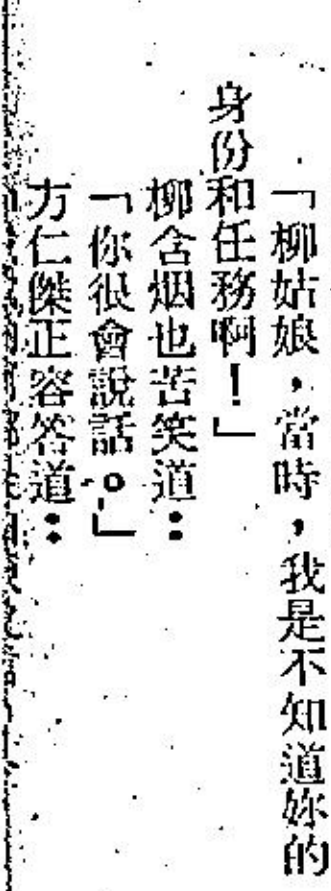 「柳姑娘，當時，我是不知道妳的
身份和任務啊！」
柳含烟也苦笑道：
「你很會說話。」
方仁傑正容答道：